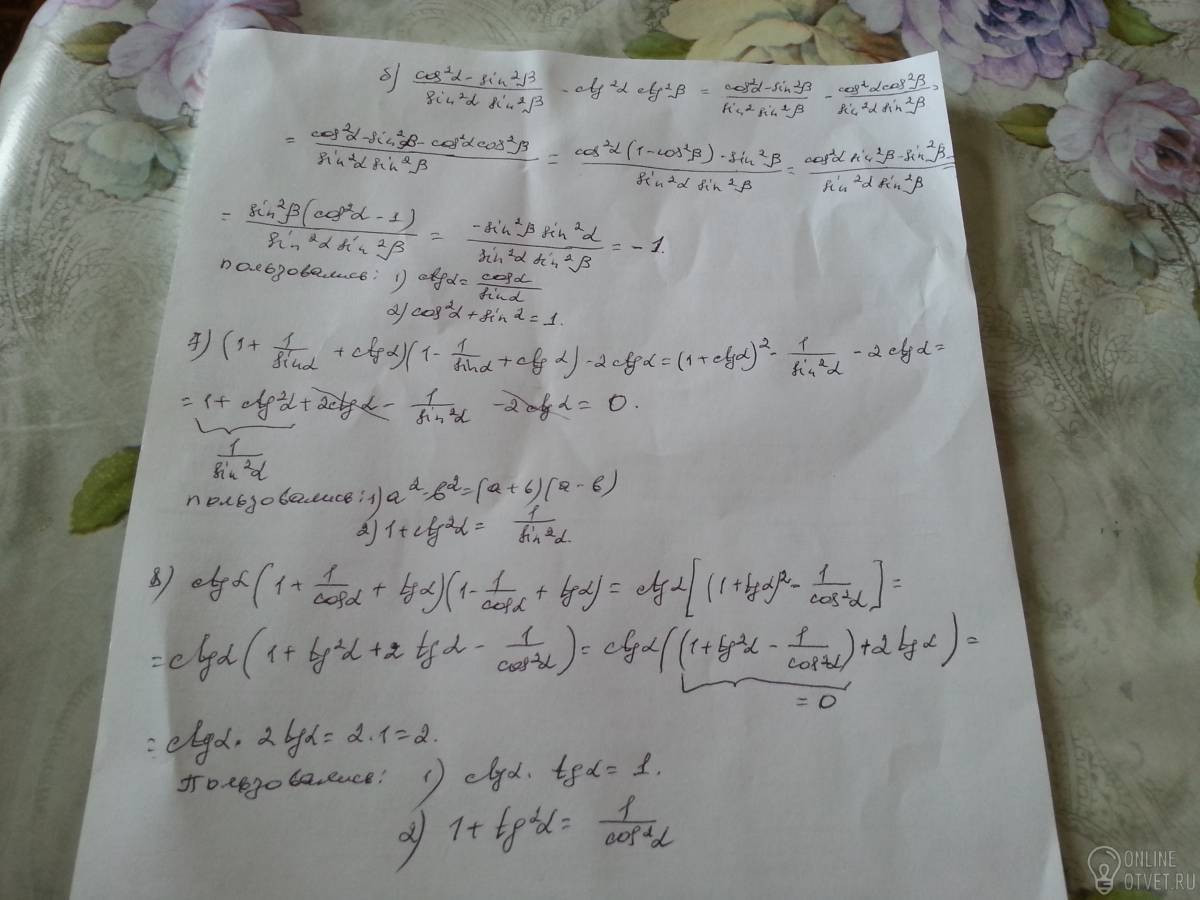 б) (cos²α - sin²β)/(sin²α sin²β) - ctg²α ctg²β = (cos²α - sin²β)/(sin² sin²β) - (cos²α cos²β)/(sin²α sin²β) =
= (cos²α - sin²β - cos²α cos²β)/(sin²α sin²β) = (cos²α (1 - cos²β) - sin²β)/(sin²α sin²β) = (cos²α sin²β - sin²β)/(sin²α sin²β) =
= (sin²β (cos²α - 1))/(sin²α sin²β) = (-sin²β sin²α)/(sin²α sin²β) = -1.
пользовались: 1) ctgα = cosα/sinα
2) cos²α + sin²α = 1.
7) (1 + 1/sinα + ctgα)(1 - 1/sinα + ctgα) - 2ctgα = (1 + ctgα)² - 1/sin²α - 2ctgα =
= 1 + ctg²α + 2ctgα - 1/sin²α - 2ctgα = 0.
1/sin²α
пользовались: 1) a² - b² = (a + b)(a - b)
2) 1 + ctg²α = 1/sin²α.
8) ctgα (1 + 1/cosα + tgα)(1 - 1/cosα + tgα) = ctgα [(1 + tgα)² - 1/cos²α] =
= ctgα (1 + tg²α + 2 tgα - 1/cos²α) = ctgα ((1 + tg²α - 1/cos²α) + 2 tgα) =
= 0
= ctgα · 2 tgα = 2 · 1 = 2.
Пользовались: 1) ctgα · tgα = 1.
2) 1 + tg²α = 1/cos²α
ONLINE
OTVET.RU